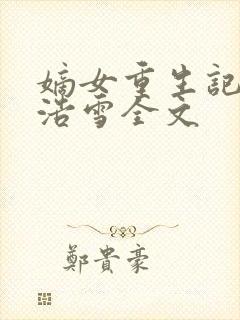 嫡女重生記
浩雪全文
鄭貴豪